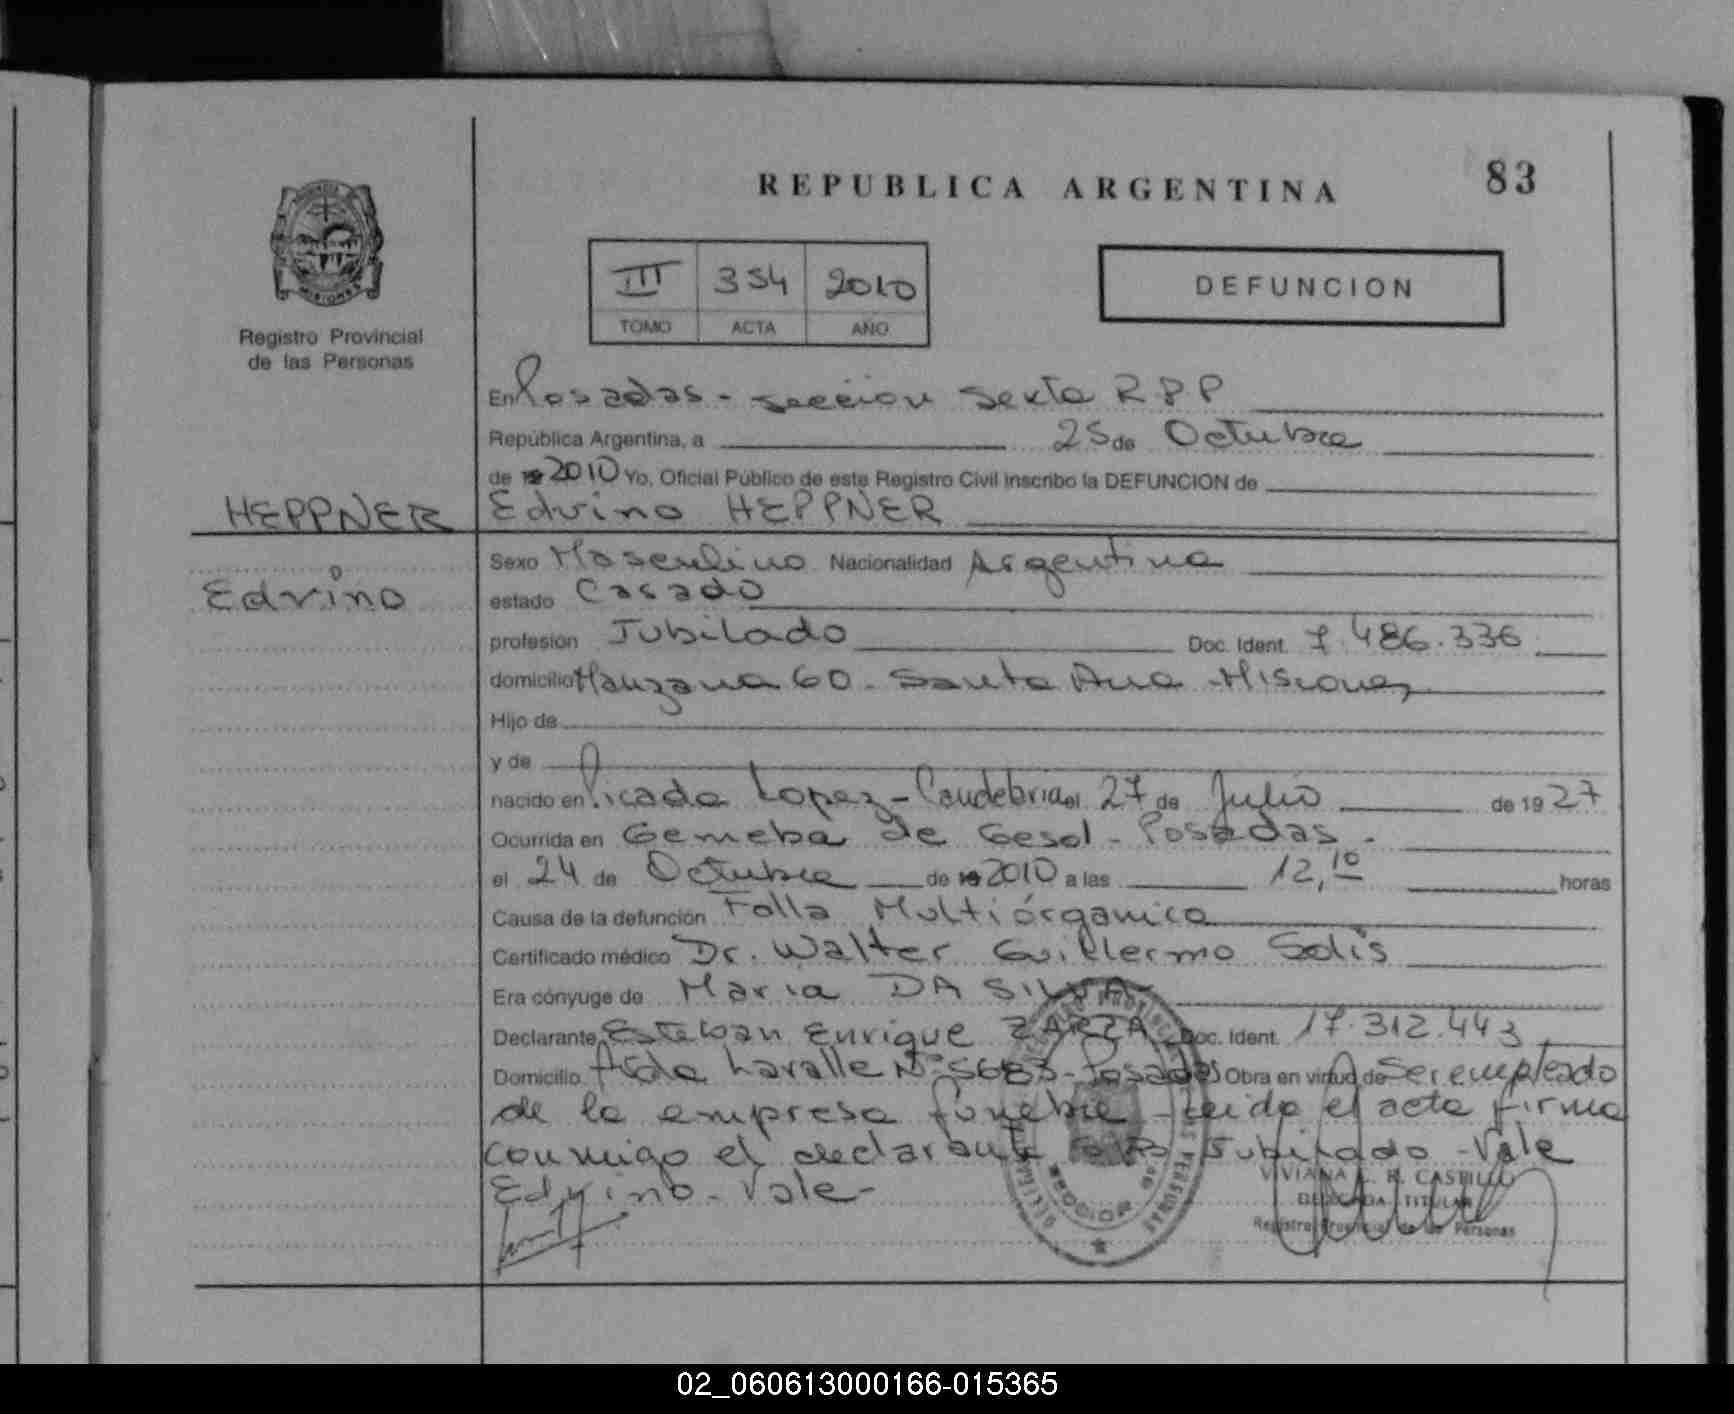 REPUBLICA ARGENTINA
83
III 354 2010
TOMO ACTA AÑO
DEFUNCION
MISIONES
Registro Provincial
de las Personas
En Posadas - seccion Sexta RPP
República Argentina, a 25 de Octubre
de 19 2010 Yo, Oficial Público de este Registro Civil inscribo la DEFUNCION de
HEPPNER
Edvino HEPPNER
Edvino
Sexo Masculino Nacionalidad Argentina
estado Casado
profesión Jubilado Doc. Ident. 7.486.336
domicilio Manzana 60 - Santa Ana - Misiones
Hijo de
y de
nacido en Picada Lopez - Candelaria el 27 de Julio de 19 27
Ocurrida en Gemeba de Gesol - Posadas -
el 24 de Octubre de 19 2010 a las 12,10 horas
Causa de la defunción Falla Multiórganica
Certificado médico Dr. Walter Guillermo Solis
Era cónyuge de Maria DA SILVA
Declarante Esteban Enrique ZARZA Doc. Ident. 17.312.443
Domicilio Avda Lavalle Nº 5683 - Posadas Obra en virtud de Ser empleado
de la empresa funebre - Leida el acta firma
conmigo el declarante Jubilado - Vale
Edvino - Vale -
VIVIANA L. R. CASTILLO
DELEGADA TITULAR
Registro Provincial de las Personas
02_060613000166-015365